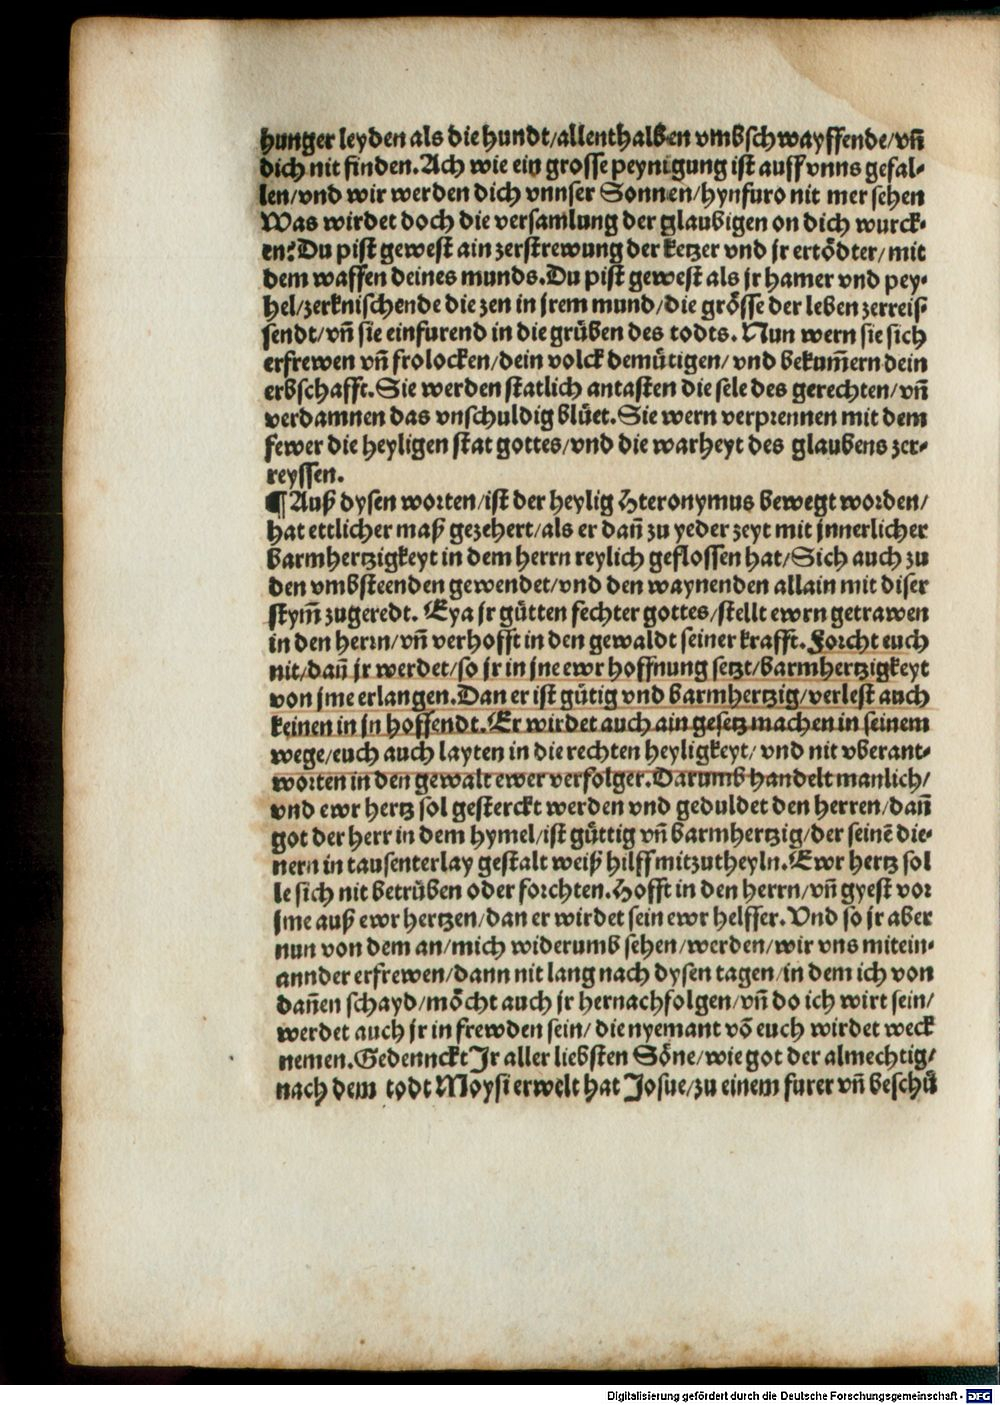 hunger leyden als die hundt/allenthalben vmbschwayffende/vn̄
dich nit finden. Ach wie ein grosse peynigung ist auff vnns gefal-
len/vnd wir werden dich vnnser Sonnen/hynfuro nit mer sehen
Was wirdet doch die versamlung der glaubigen on dich wurck-
en? Du pist gewest ain zerstrewung der ketzer vnd jr ertödter/mit
dem waffen deines munds. Du pist gewest als jr hamer vnd pey-
hel/zerknischende die zen in jrem mund/die grösse der leben zerreis-
sendt/vn̄ sie einfurend in die grüben des todts. Nun wern sie sich
erfrewen vn̄ frolocken/dein volck demütigen/vnd bekum̄ern dein
erbschafft. Sie werden statlich antasten die sele des gerechten/vn̄
verdamnen das vnschuldig blüet. Sie wern verprennen mit dem
fewer die heyligen stat gottes/vnd die warheyt des glaubens zer-
reyssen.
¶ Auß dysen worten/ist der heylig Hieronymus bewegt worden/
hat ettlicher maß gezehert/als er dan̄ zu yeder zeyt mit jnnerlicher
barmhertzigkeyt in dem herrn reylich geflossen hat/Sich auch zu
den vmbsteenden gewendet/vnd den waynenden allain mit diser
stym̄ zugeredt. Eya jr gütten fechter gottes/stellt ewrn getrawen
in den herrn/vn̄ verhofft in den gewaldt seiner krafft. Forcht euch
nit/dan̄ jr werdet/so jr in jne ewr hoffnung setzt/barmhertzigkeyt
von jme erlangen. Dan er ist gütig vnd barmhertzig/verlest auch
keinen in jn hoffendt. Er wirdet auch ain gesetz machen in seinem
wege/euch auch layten in die rechten heyligkeyt/vnd nit vberant-
worten in den gewalt ewer verfolger. Darumb handelt manlich/
vnd ewr hertz sol gesterckt werden vnd geduldet den herren/dan̄
got der herr in dem hymel/ist güttig vn̄ barmhertzig/der seinē die-
nern in tausenterlay gestalt weiß hilff mitzutheyln. Ewr hertz sol
le sich nit betrüben oder forchten. Hofft in den herrn/vn̄ gyest vor
jme auß ewr hertzen/dan er wirdet sein ewr helffer. Vnd so jr aber
nun von dem an/mich widerumb sehen/werden/wir vns mitein-
annder erfrewen/dann nit lang nach dysen tagen/in dem ich von
dan̄en schayd/möcht auch jr hernachfolgen/vn̄ do ich wirt sein/
werdet auch jr in frewden sein/die nyemant vō euch wirdet weck
nemen. Gedennckt Jr aller liebsten Söne/wie got der almechtig/
nach dem todt Moysi erwelt hat Josue/zu einem furer vn̄ beschü
Digitalisierung gefördert durch die Deutsche Forschungsgemeinschaft - DFG